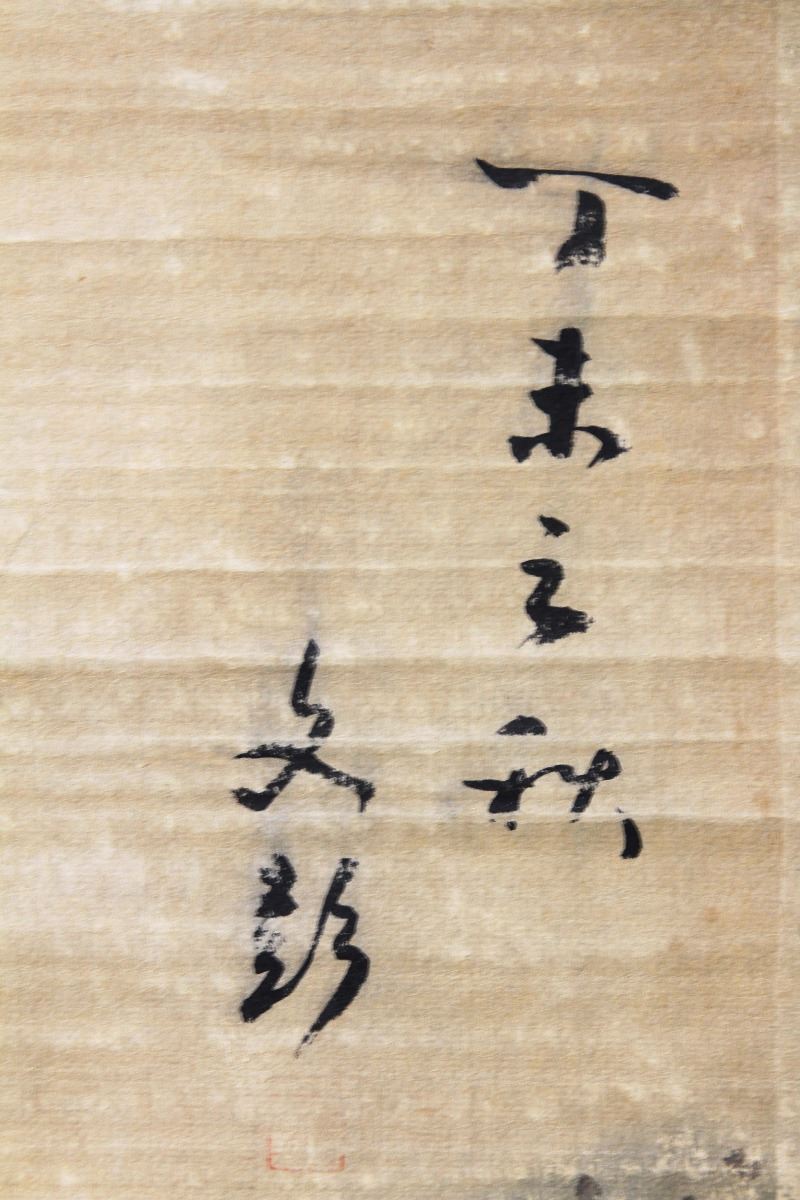 丁未之秋
文彭